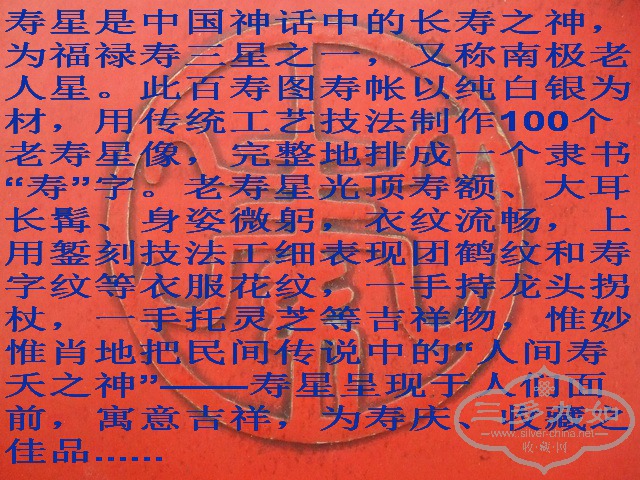 寿星是中国神话中的长寿之神，
为福禄寿三星之一，又称南极老
人星。此百寿图寿帐以纯白银为
材，用传统工艺技法制作100个
老寿星像，完整地排成一个隶书
“寿”字。老寿星光顶寿额、大耳
长髯、身姿微躬，衣纹流畅，上
用錾刻技法工细表现团鹤纹和寿
字纹等衣服花纹，一手持龙头拐
杖，一手托灵芝等吉祥物，惟妙
惟肖地把民间传说中的“人间寿
夭之神”——寿星呈现于人们面
前，寓意吉祥，为寿庆、收藏之
佳品……
www.silver-china.net
收·藏·网